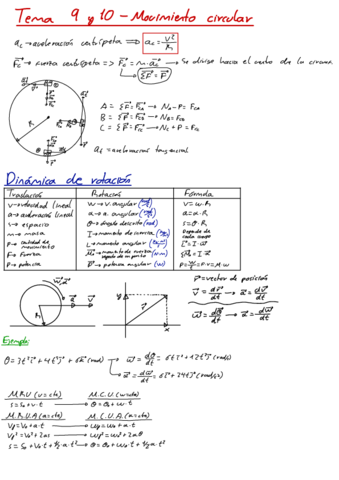 Tema 9 y 10 - Movimiento circular
ac → aceleración centrípeta => ac = v²/R
Fc → fuerza centrípeta => Fc = m·ac → Se dirige hacia el centro de la circun
ΣF = F
A = ΣF = FcA → NA - P = FcA
B = ΣF = FcB → NB = FcB
C = ΣF = FcC → NC + P = FcC
at = aceleración tangencial
Dinámica de rotación
Traslación Rotación Fórmula
v → velocidad lineal W → v. angular V = w·R
a → aceleración lineal α → a. angular a = α·R
s → espacio θ → ángulo descrito (rad) s = θ·R
m → masa I → momento de inercia Depende de cada cuerpo
P → cantidad de movimiento L → momento angular L = I·ω
F → Fuerza M → momento de fuerza ΣM = I·α
P → potencia P → potencia angular (W)
r = vector de posición
v = dr/dt → a = dv/dt
ω = dθ/dt → α = dω/dt
Ejemplo:
θ = 3t²i + 4t³j + 6k (rad) → ω = dθ/dt = 6ti + 12t²j (rad/s)
α = dω/dt = 6i + 24tj (rad/s²)
M.R.U (v=cte) M.C.U (w=cte)
s = s₀ + v·t → θ = θ₀ + w·t
M.R.U.A (a=cte) M.C.U.A (α=cte)
Vf = V₀ + a·t → wf = w₀ + α·t
Vf² = V₀² + 2as → wf² = w₀² + 2αθ
s = s₀ + V₀·t + ½·a·t² → θ = θ₀ + w₀·t + ½α·t²